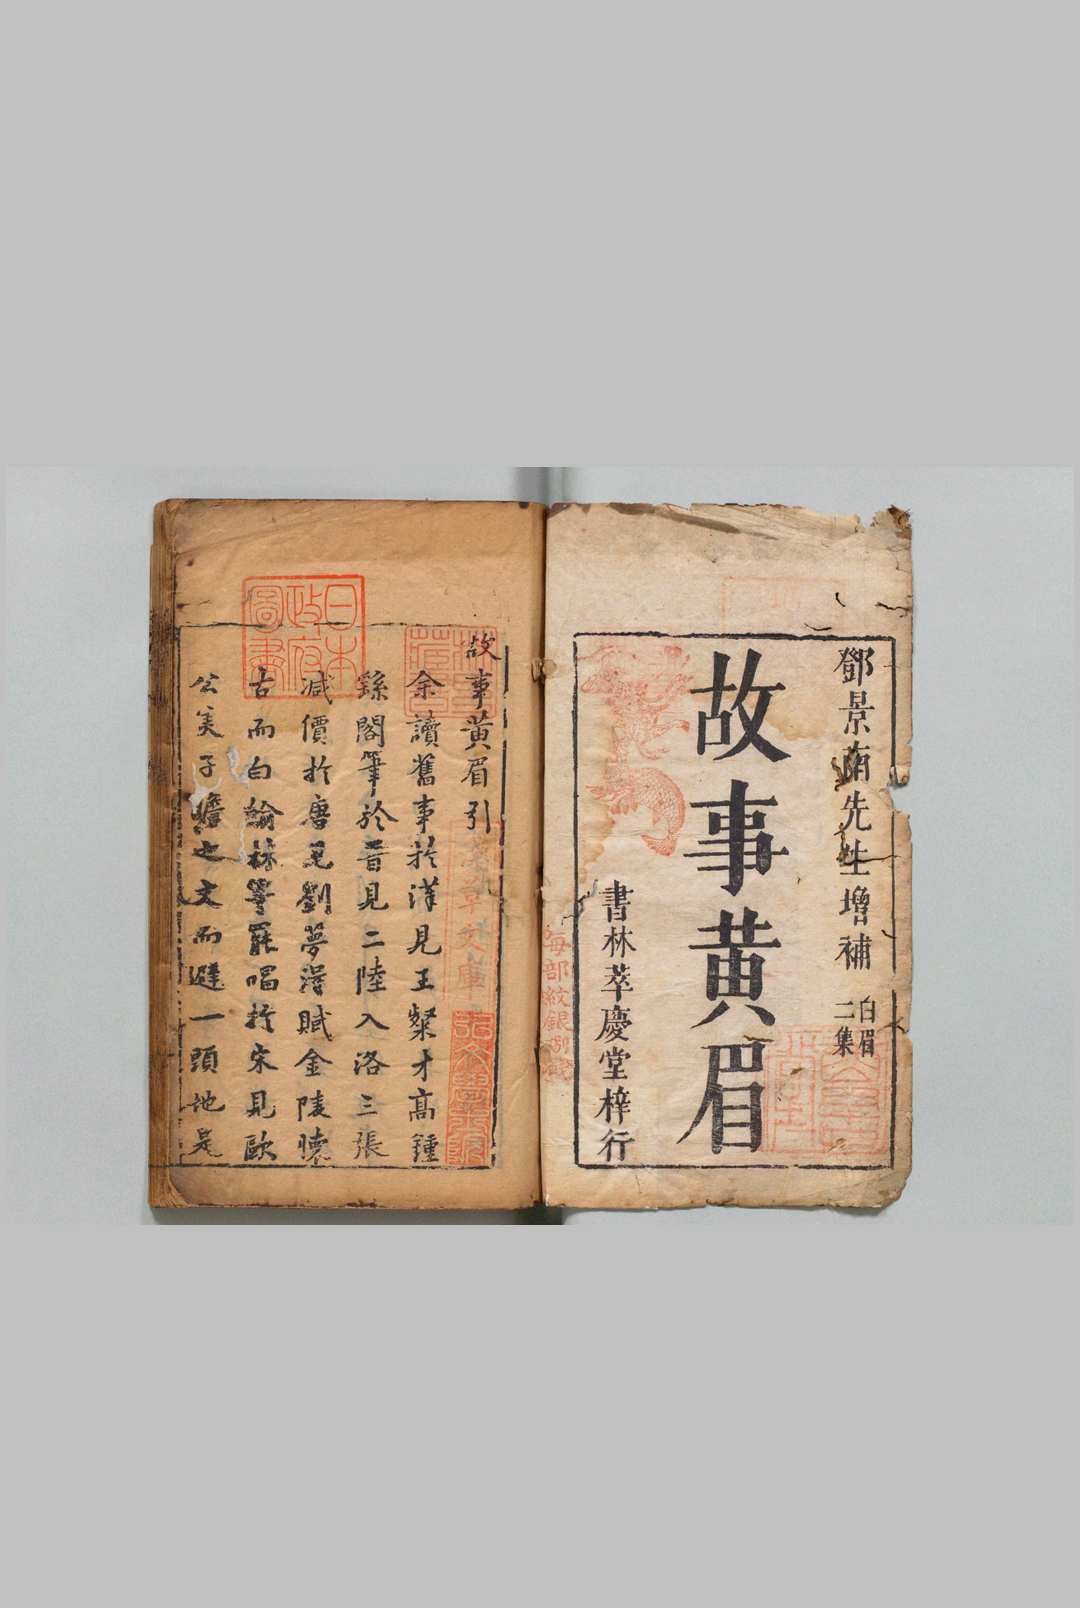 鄧景南先生增補
白眉
二集
故事黄眉
書林萃慶堂梓行
每部紋銀
故事黄眉引
余讀舊事於漢見王粲才高鍾
繇閣筆於晉見二陸入洛三張
減價於唐見劉夢得賦金陵懷
古而白翰林等罷唱於宋見歐
公羡子瞻之文而避一頭地是
日本
政府
圖書